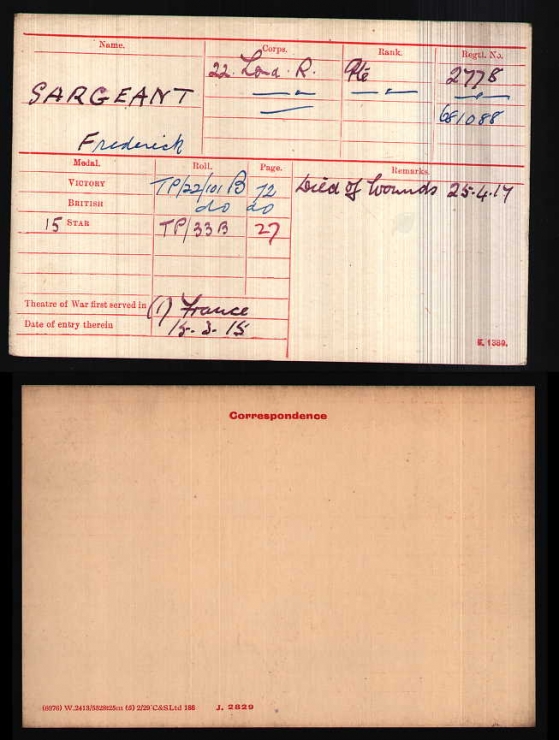 Name. Corps. Rank. Regtl. No.
22. Lond. R. Pte 2778
SARGEANT — " — — " — — " —
681088
Frederick
Medal. Roll. Page. Remarks.
VICTORY TP/22/101 B 72 Died of Wounds 25.4.17
BRITISH do do
15 STAR TP/33B 27
Theatre of War first served in (1) France
Date of entry therein 15.3.15
K. 1380.
Correspondence
J. 2829